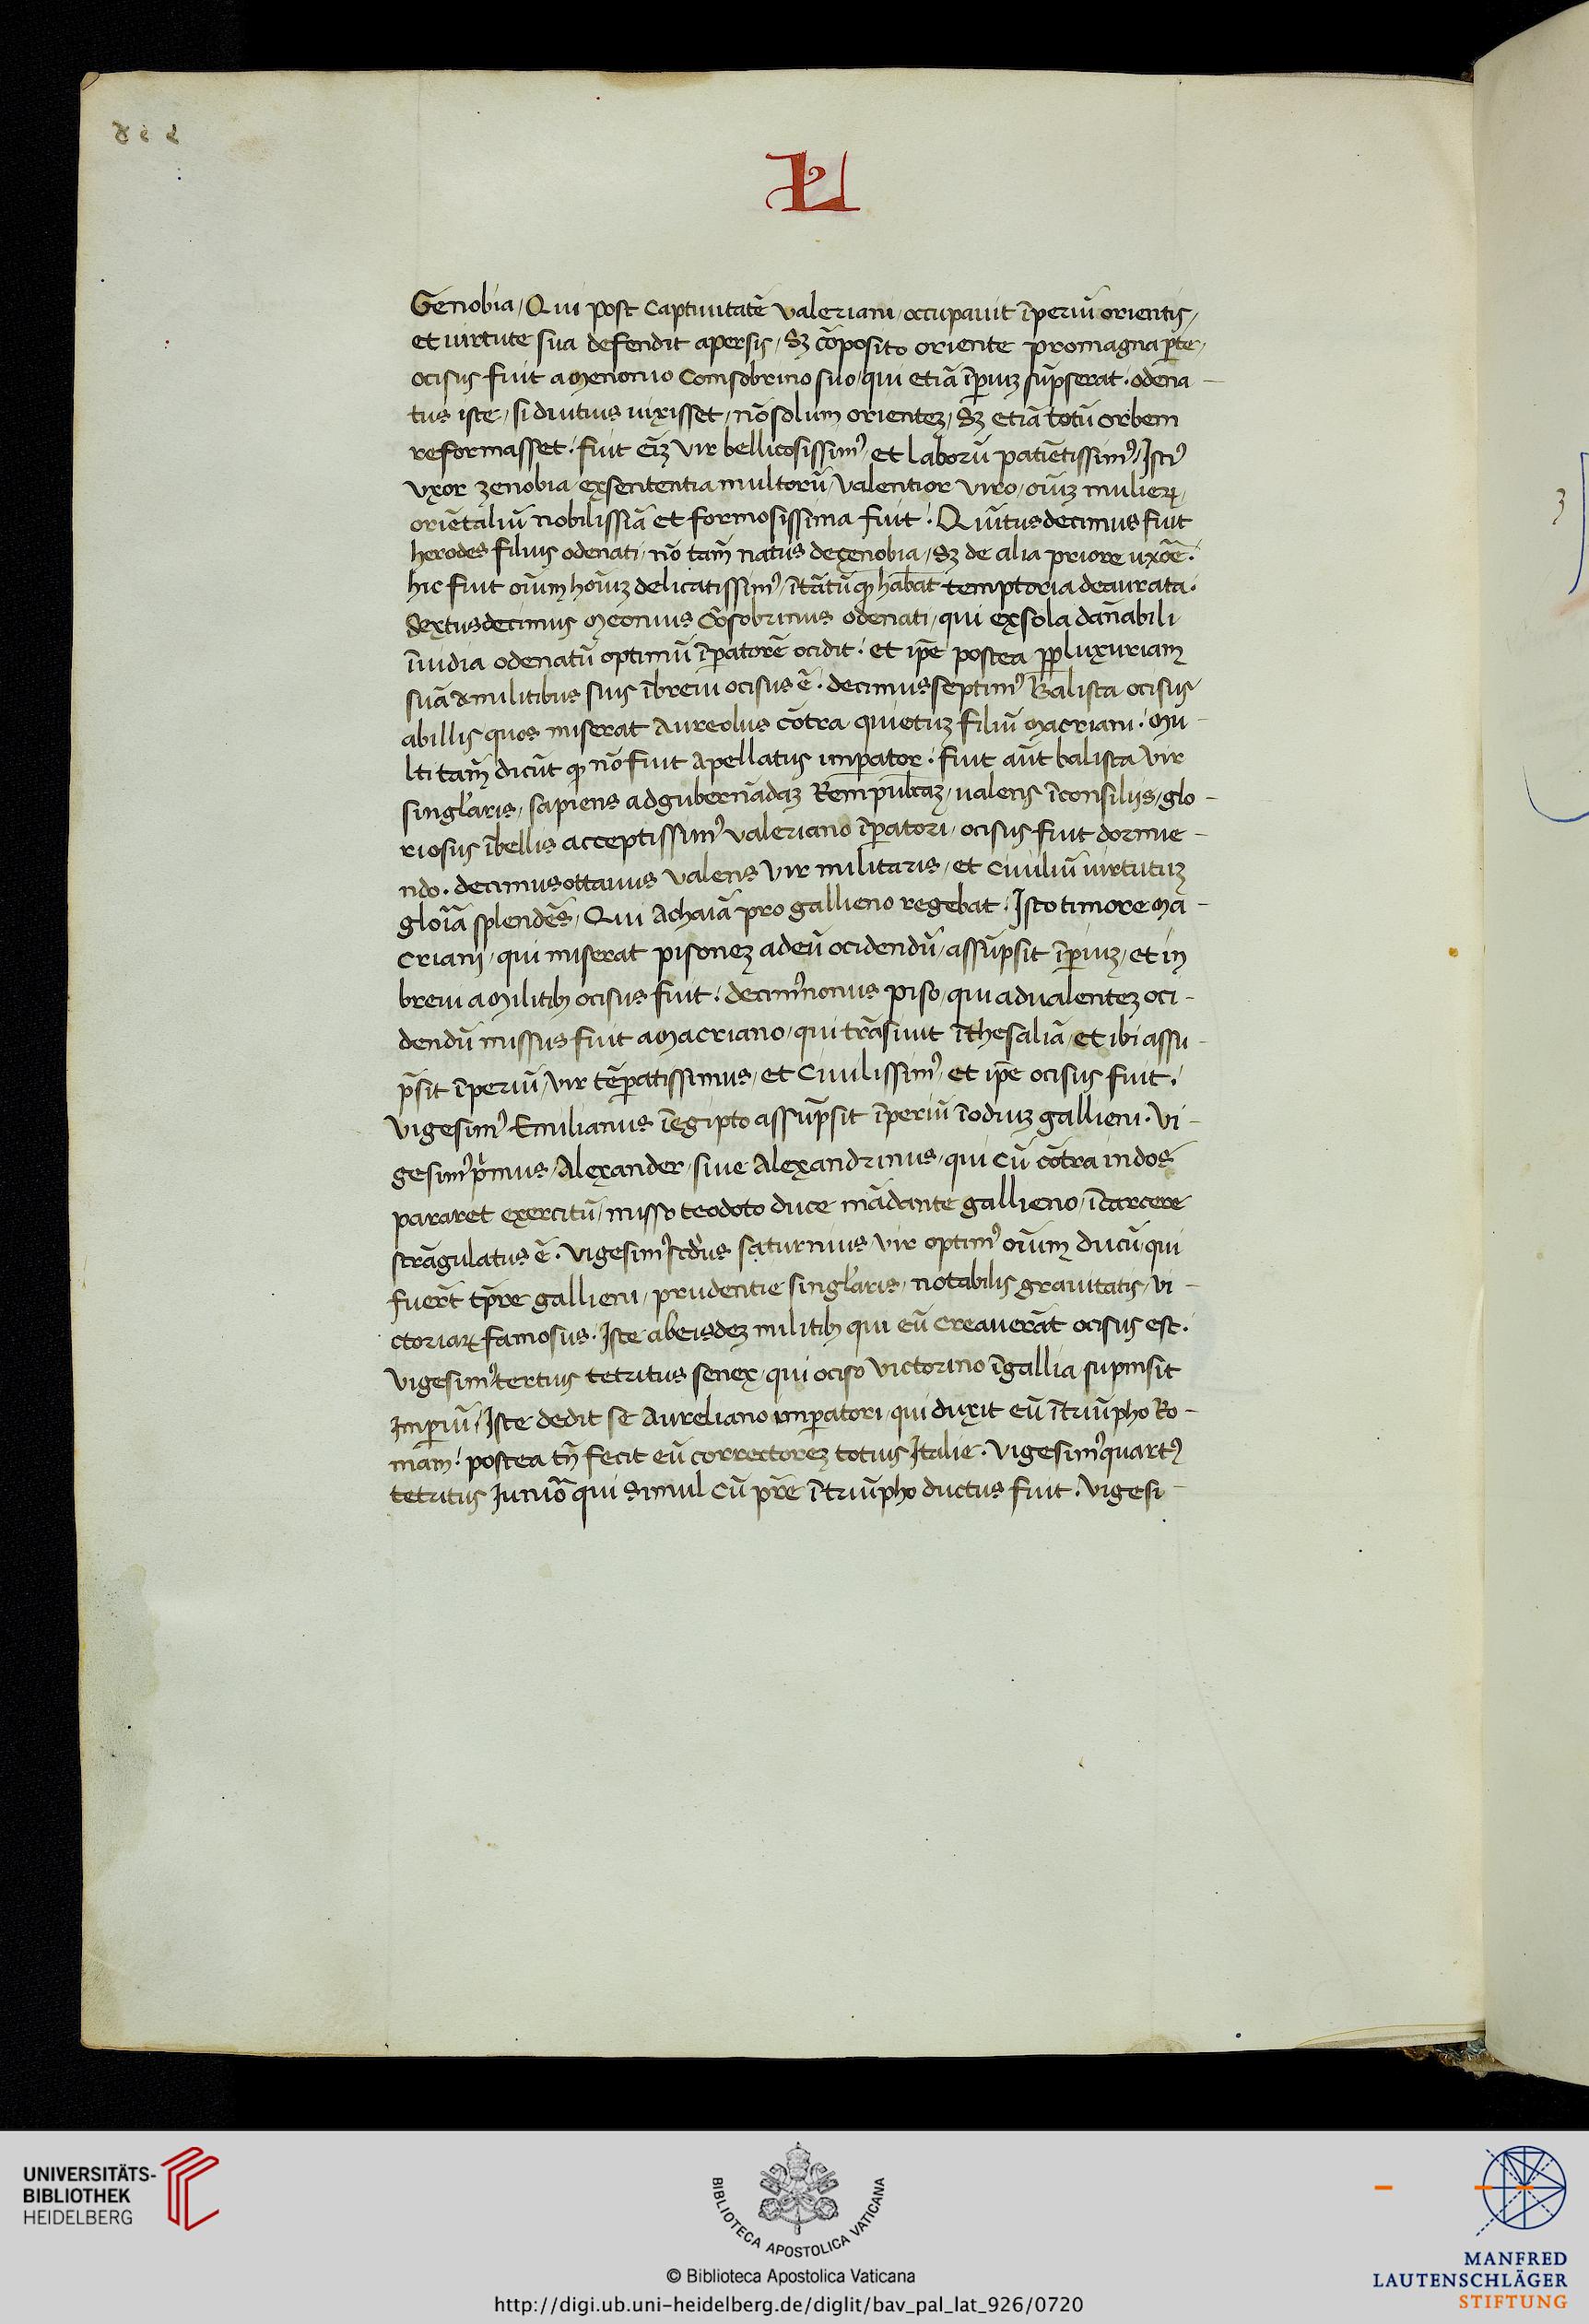 L
Genobia, Qui post captiuitatē valeriani, occupauit īperiū orientis,
et uirtute sua defendit apersis, Sꝫ cōposito oriente promagna ꝑte,
ocisus fuit a Menonio Comsobrino suo, qui etiā īꝑiuꝫ sūpserat. odena-
tus iste, si diutius uixisset, nōsolum orienteꝫ, Sꝫ etiā totū orbem
reformasset. fuit eīꝫ vir bellicosissimꝰ, et laborū patiētissimꝰ. Istiꝰ
vxor zenobia exsententia multorū, valentior viro, oīuꝫ mulieꝝ,
oriētaliū nobilissiā et formosissima fuit. Quītus decimus fuit
herodes filius odenati, nō tam̄ natus de çenobia, Sꝫ de alia priore uxoē.
hic fuit oīum hoīuꝫ delicatissimꝰ, ītātū ꝙ habat temptoria deaurata.
Sextus decimus Meonius Cōsobrinus odenati, qui exsola danabili
īuidia odenatū optimū īꝑatorē ocidit. et ip̄e postea ꝓpluxuriam
suā amilitibus suis ībreui ocisus ē. decimus septimꝰ Balista ocisus
abillis quos miserat Aureolus cōtra quietuꝫ filiū Macriani. Mu-
lti tam̄ dicūt ꝙ nō fuit Apellatus imꝑator. fuit aūt balista vir
singl'aris, sapiens adgubernādaꝫ Rempub̄caꝫ, ualens īconsiliis, glo-
riosus ībellis acceptissimꝰ valeriano īꝑatori, ocisus fuit dormie-
ndo. decimusottauus valens vir militaris, et Ciuiliū uirtutuꝫ
gloīa splendēs, Qui Achaiā pro gallieno regebat. Isto timore Ma-
criani, qui miserat pisoneꝫ adeū ocidendū, assūpsit īꝑiuꝫ, et in
breui a Militibꝫ ocisus fuit. decimꝰnonus piso, qui adualenteꝫ oci-
dendū missus fuit a Macriano, qui trāsiuit īthesaliā, et ibi assu-
p̄sit īperiū, vir tēꝑatissimus, et Ciuilissimꝰ, et ip̄e ocisus fuit.
vigesimꝰ Emilianus īegipto assūpsit īperiū īodiuꝫ gallieni. Vi-
gesimꝰ pͥmus, Alexander, siue Alexandrinus, qui cū cōtra indos
pararet exercitū, misso teodoto duce mādante gallieno, īcarcere
strāgulatus ē. vigesimꝰ scd̄us saturnius, vir optimꝰ oīum ducū, qui
fuerūt tp̄re gallieni, prudentie singl'aris, notabilis grauitatis, vi-
ctoriaꝝ famosus. Iste abeisdeꝫ militibꝫ qui eū creauerāt ocisus est.
vigesimꝰtertius tetritus senex, qui ociso victorino īgallia supmsit
Imꝑiū. Iste dedit se Aureliano imꝑatori, qui duxit eū ītriūpho Ro-
mam. postea tn̄ fecit eū correctoreꝫ totius Italie. Vigesimꝰquartꝰ
tetritus Juniōr qui simul cū pr̄e ītriūpho ductus fuit. vigesi-
UNIVERSITÄTS-
BIBLIOTHEK
HEIDELBERG
BIBLIOTECA APOSTOLICA VATICANA
© Biblioteca Apostolica Vaticana
http://digi.ub.uni-heidelberg.de/diglit/bav_pal_lat_926/0720
MANFRED
LAUTENSCHLÄGER
STIFTUNG